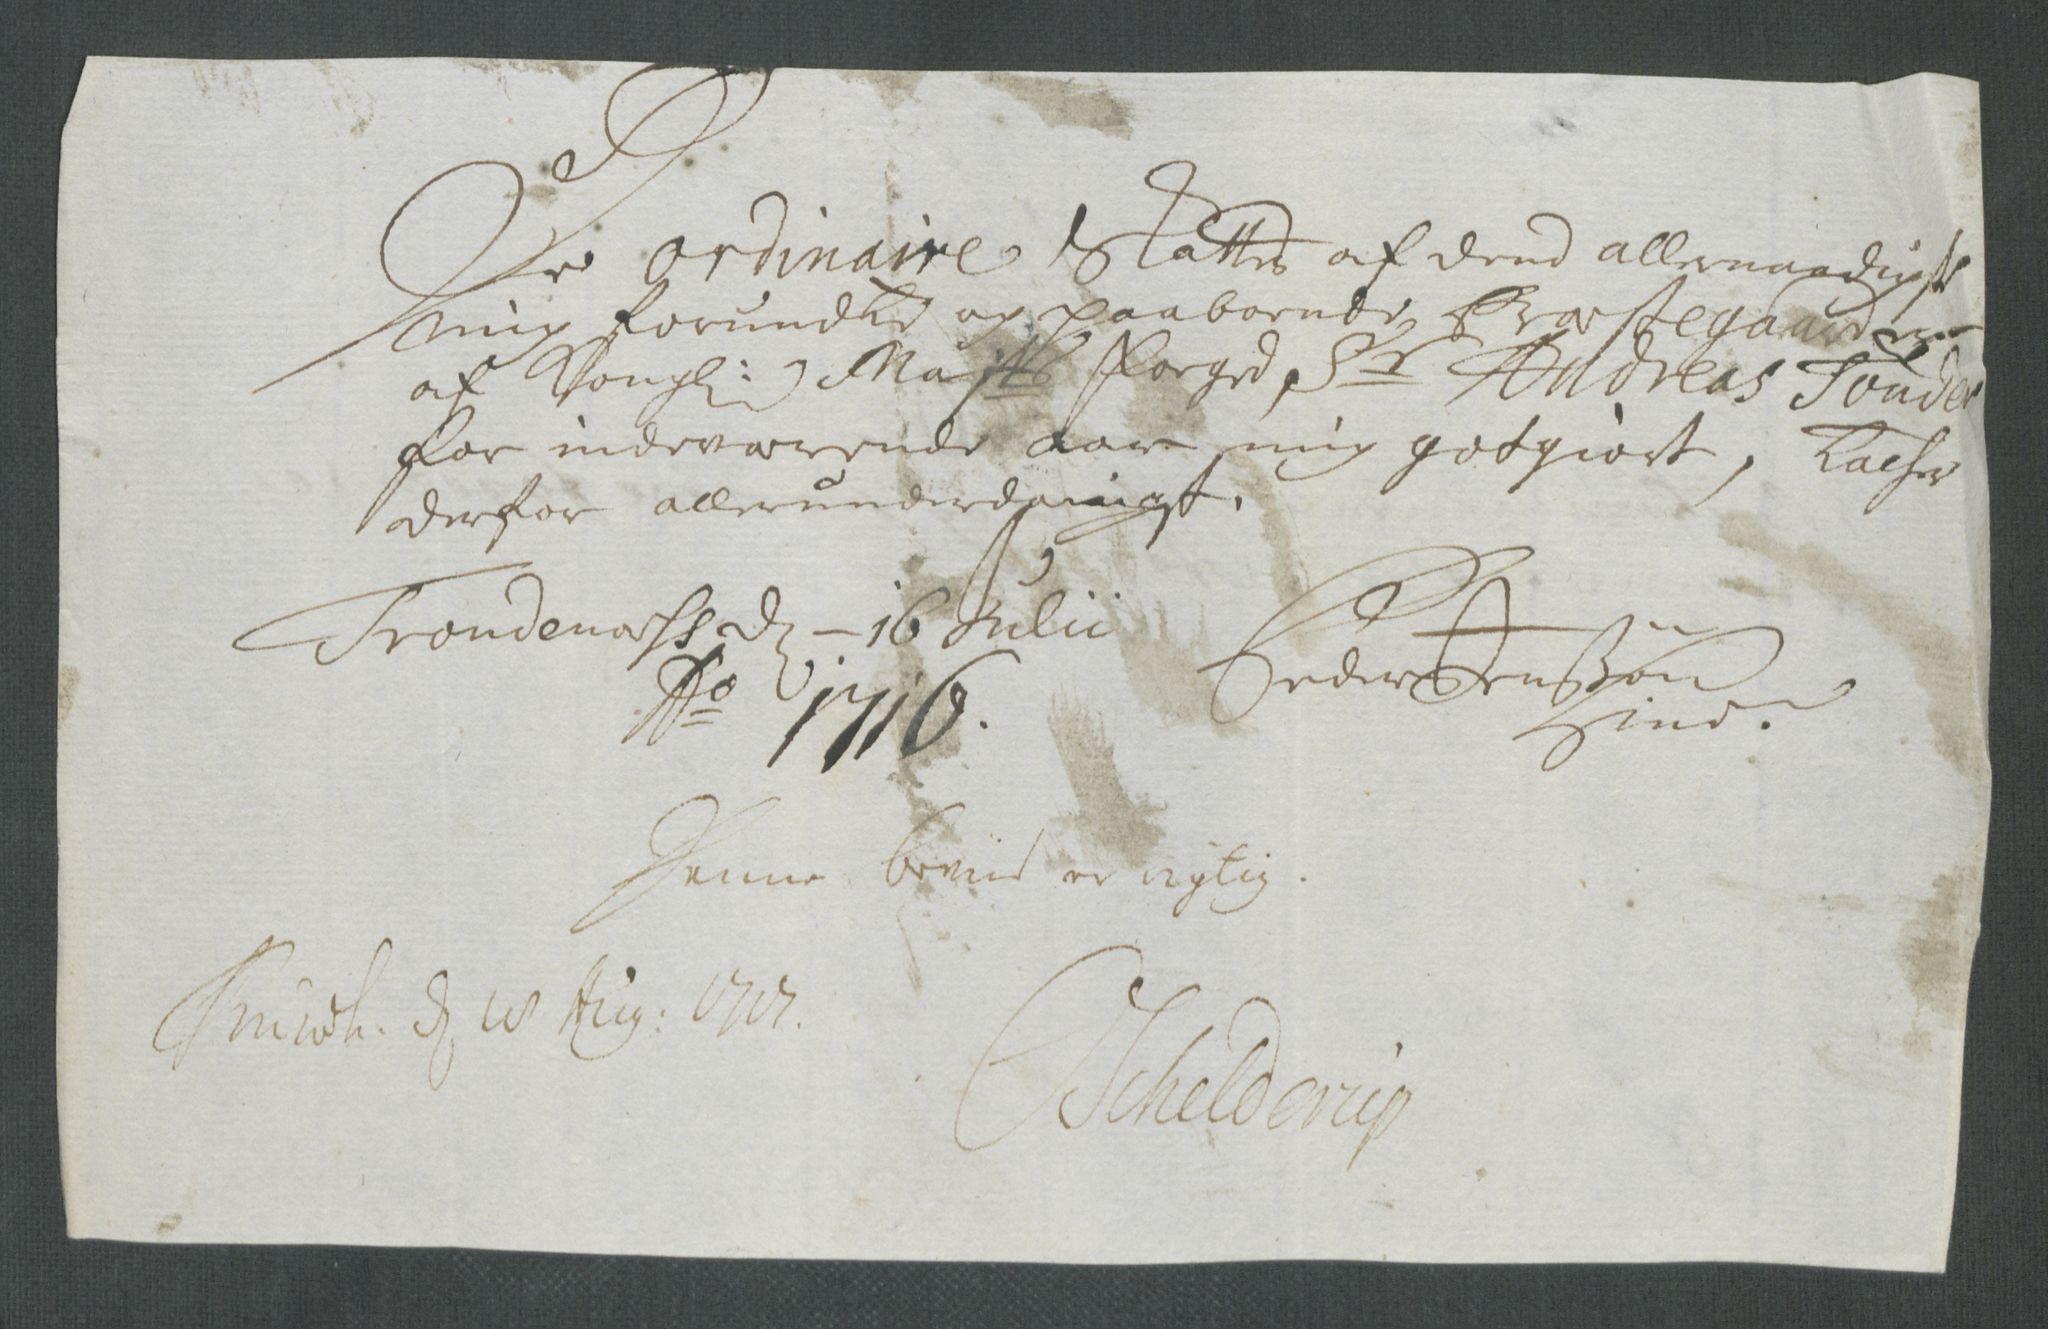 De ordinaire Skatter af dend allernaadigst
mig forundte og paaboende Præstegaard er
af Kongl: Majts Foged, Sr Andreas Tønder
for indeværende aar mig gotgiort, Tacher
derfor allerunderdanigst.
Trondenæss d. 16 Julii
Ao 1716.
Peder Jenssøn
Hind.
Denne beviis er rigtig.
d. 18 Aug: 1717.
Schelderup